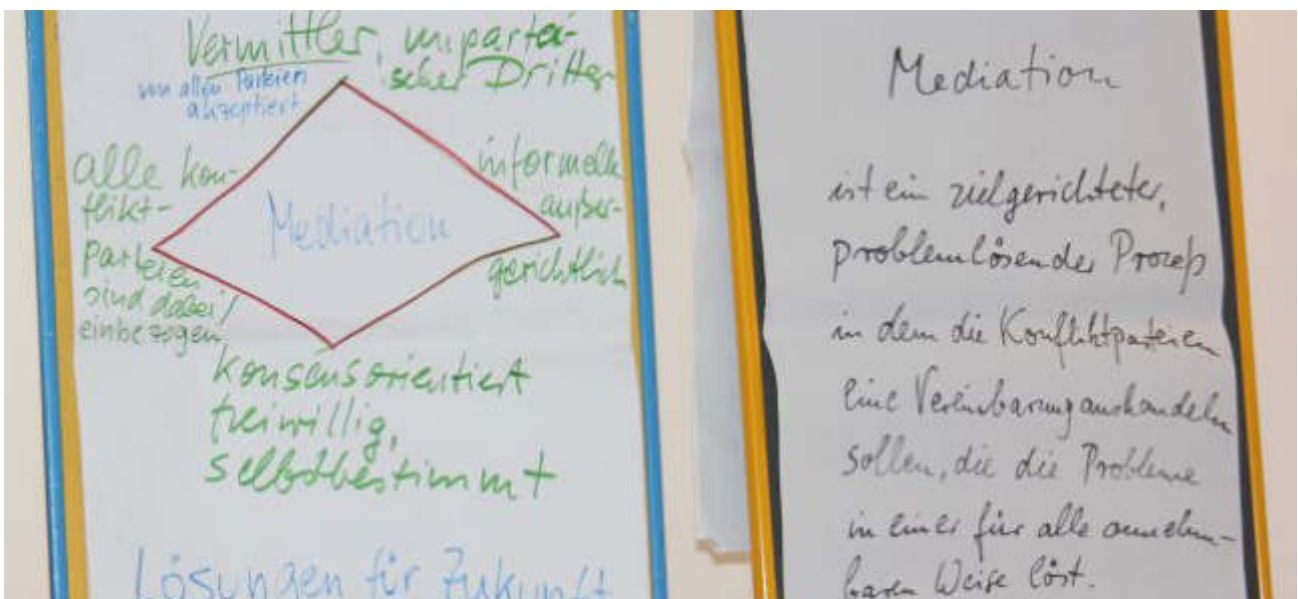 Vermittler, unpartei-
ischer Dritter
von allen Parteien
akzeptiert
alle Kon-
flikt-
Parteien
sind dabei/
einbezogen
Mediation
informell
außer-
gerichtlich
Konsensorientiert
freiwillig,
selbstbestimmt
Lösungen für Zukunft
Mediation
ist ein zielgerichteter,
problemlösender Prozeß
in dem die Konfliktparteien
eine Vereinbarung aushandeln
sollen, die die Probleme
in einer für alle annehm-
baren Weise löst.